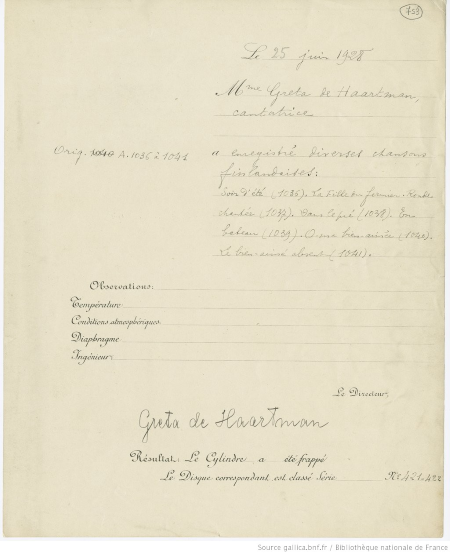 703
Le 25 juin 1928
Mme Greta de Haartman,
cantatrice
Orig. 1040 A. 1036 à 1041
a enregistré diverses chansons
finlandaises:
Soir d'été (1036). La fille du fermier.
chantée (1037). Dans le pré (1038). En
bateau (1039). O ma bien aimée (1040).
Le bien aimé absent (1041).
Observations:
Température
Conditions atmosphériques
Diaphragme
Ingénieur:
Le Directeur,
Greta de Haartman
Résultat: Le Cylindre a été frappé
Le Disque correspondant est classé Série Nr. 421-422
Source gallica.bnf.fr / Bibliothèque nationale de France